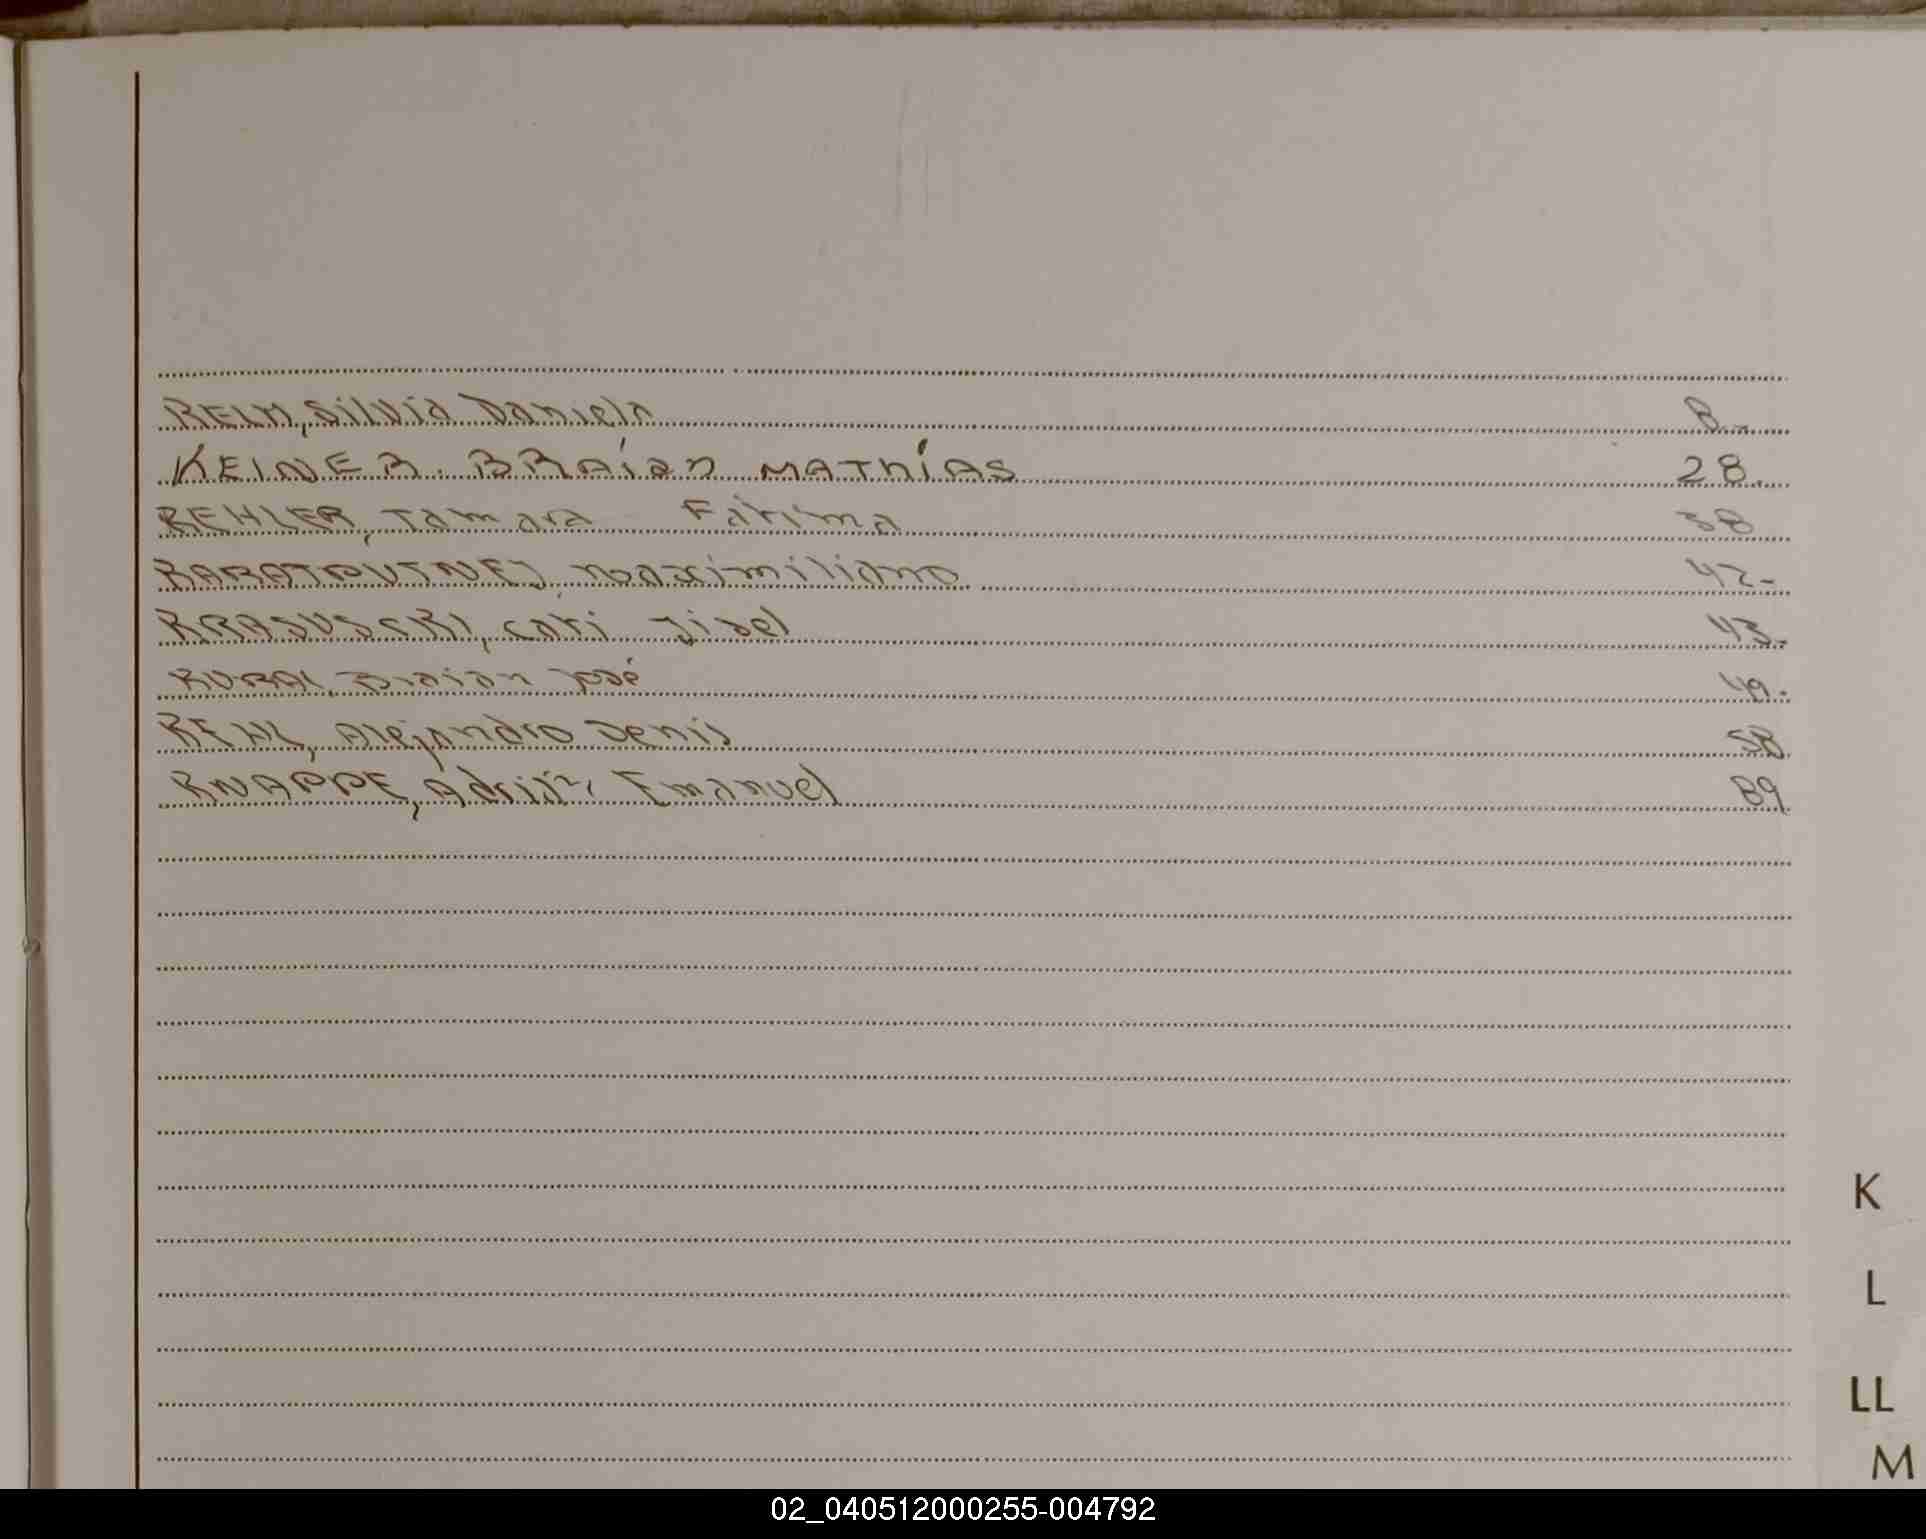 KELM, Silvia Daniela 8.-
KEINER. BRAian MATHiAS 28.
KEHLER, Tamara Fatima 38
maximiliano 42-
KRASUSCKI, Cati Jisel 43.-
KURAI, Braian José 49.-
KEHL, Alejandro Denis 58
KNAPPE, Adrián Emanuel 89
K
L
LL
M
02_040512000255-004792